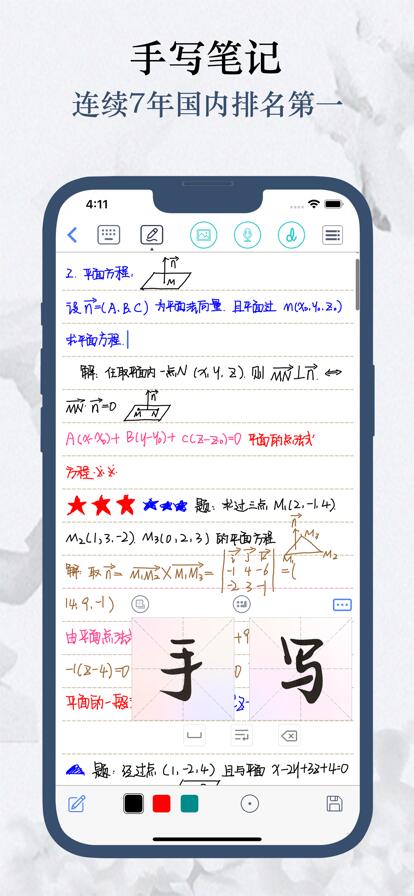 手写笔记
连续7年国内排名第一
4:11
2. 平面方程.
n
M
设 n=(A.B.C) 为平面法向量. 且平面过 M(x₀,y₀,z₀)
求平面方程.
解: 任取平面内一点N (x,y,z). 则 MN⊥n. ⇔
MN·n=0
n
M N
A(x-x₀)+B(y-y₀)+C(z-z₀)=0 平面的点法式
方程.
题: 求过三点 M₁(2,-1,4)
M₂(1,3,-2) M₃(0,2,3) 的平面方程
n
M₃
M₁ M₂
解: 取n= M₁M₂×M₁M₃= | i j k | =(
-1 4 -6
-2 3 -1
14,9,-1)
由平面点法式
+9
-1(z-4)=0
平面的一般
手 写
题: 经过点 (1,-2,4) 且与平面 x-2y+3z+4=0